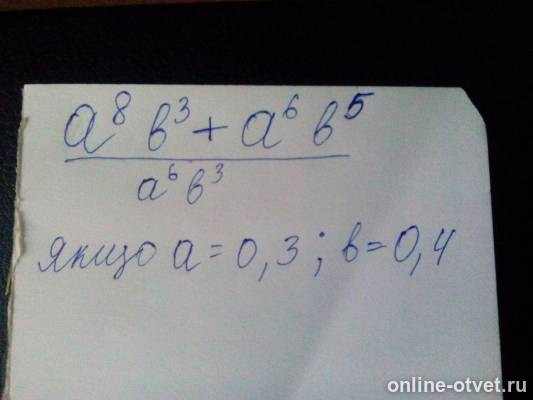 a⁸ b³ + a⁶ b⁵
a⁶ b³
якщо a = 0,3 ; b = 0,4
online-otvet.ru